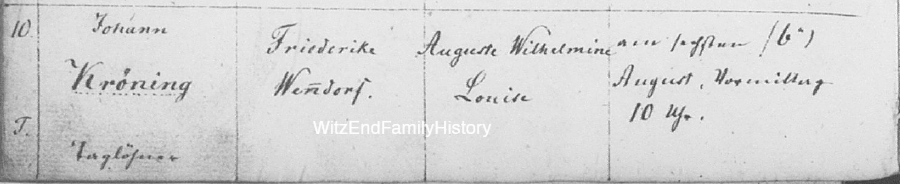 10.
Johann
Kröning
T.
Taglöhner
Friederike
Wen̄dorf.
Auguste Wilhelmine
Louise
am sechsten (6ᵗ)
August, Vormittag
10 Uhr.
WitzEndFamilyHistory